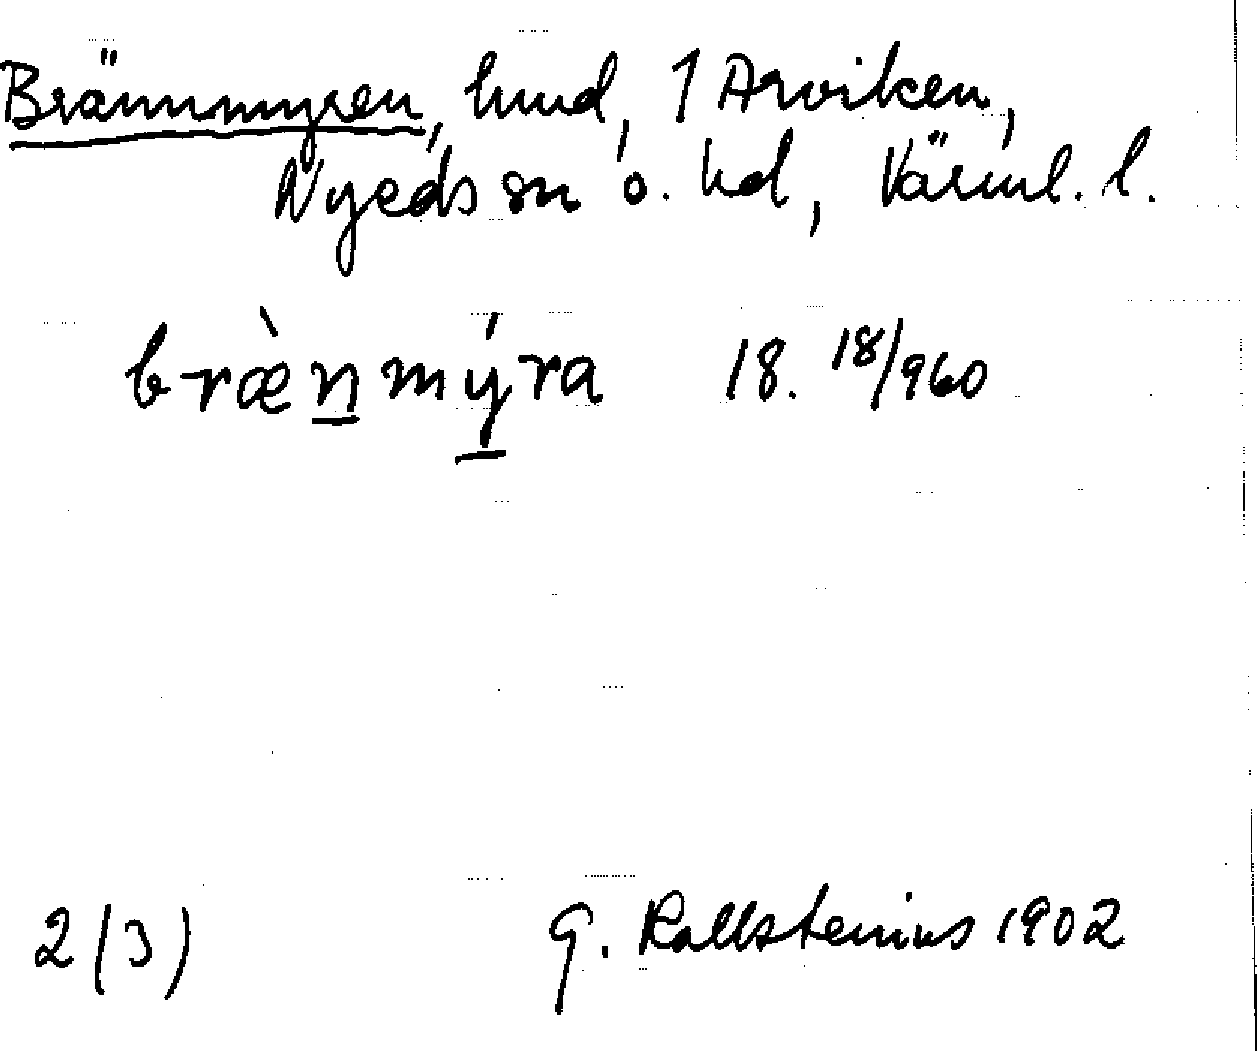 Brännmyren, hmd, 1 Arviken,
Nyeds sn o. hd, Värml. l.
bræ̀n̠mý̠ra 18. 18/960
2(3) G. Kallstenius 1902